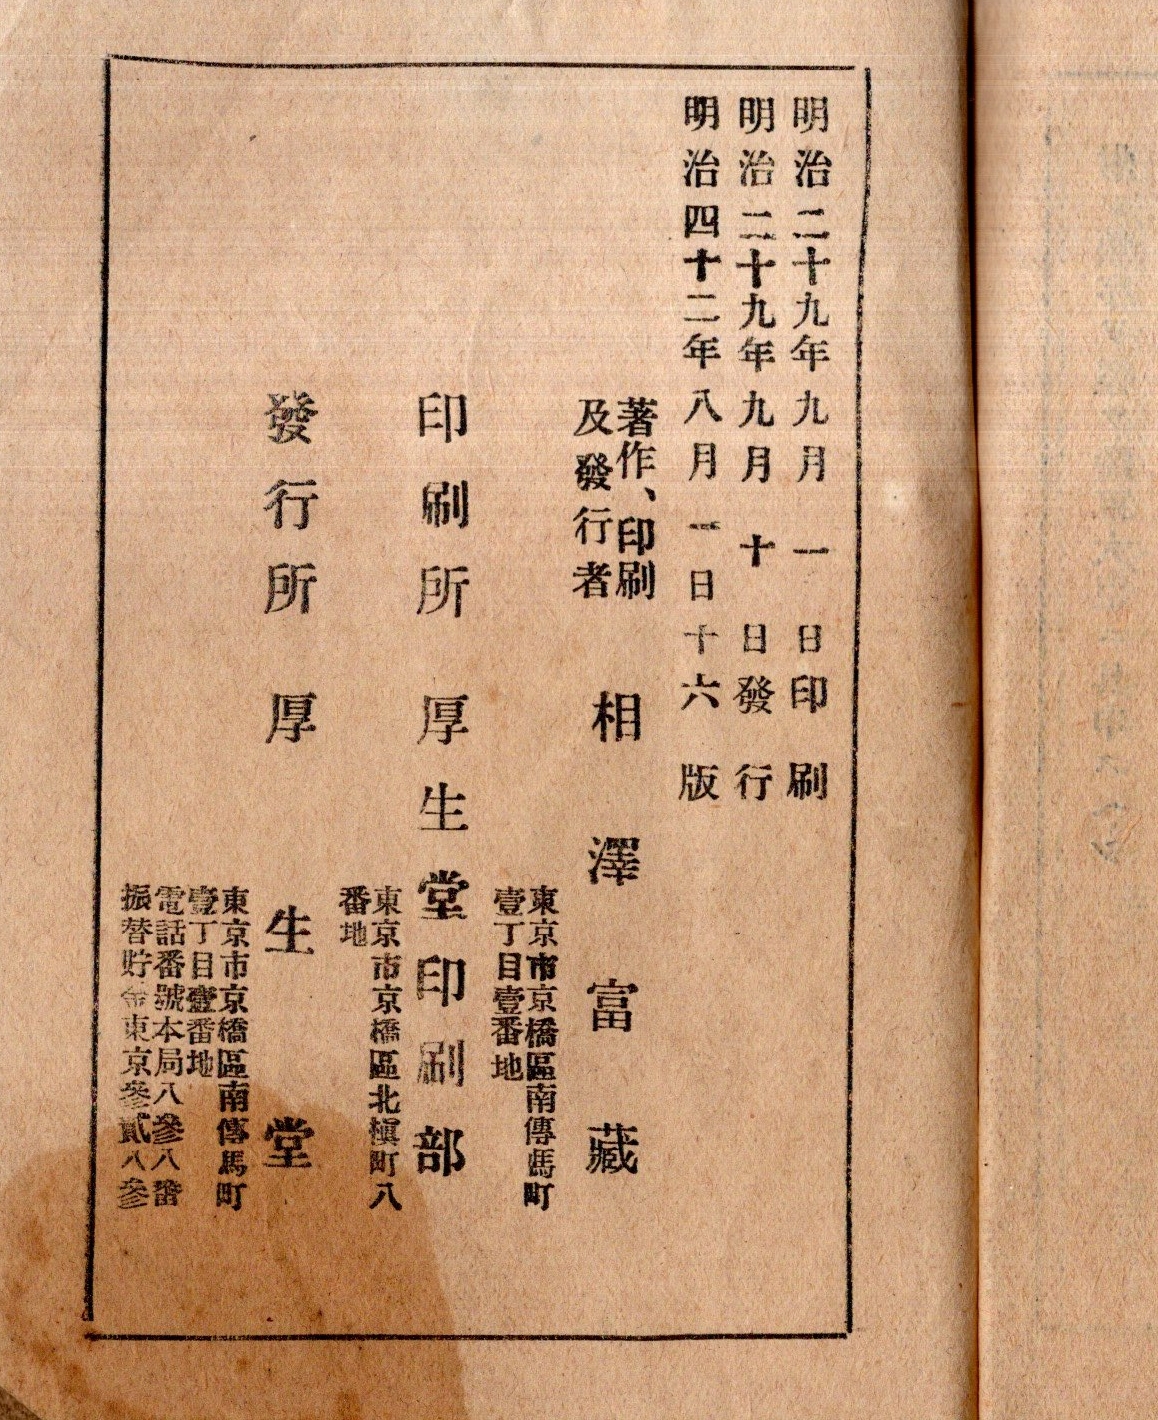 明治二十九年九月一日印刷
明治二十九年九月十日發行
明治四十二年八月一日十六版
著作、印刷
及發行者
相澤富藏
東京市京橋區南傳馬町
壹丁目壹番地
印刷所 厚生堂印刷部
東京市京橋區北槇町八
番地
發行所 厚生堂
東京市京橋區南傳馬町
壹丁目壹番地
電話番號本局八參八番
振替貯金東京參貳八參